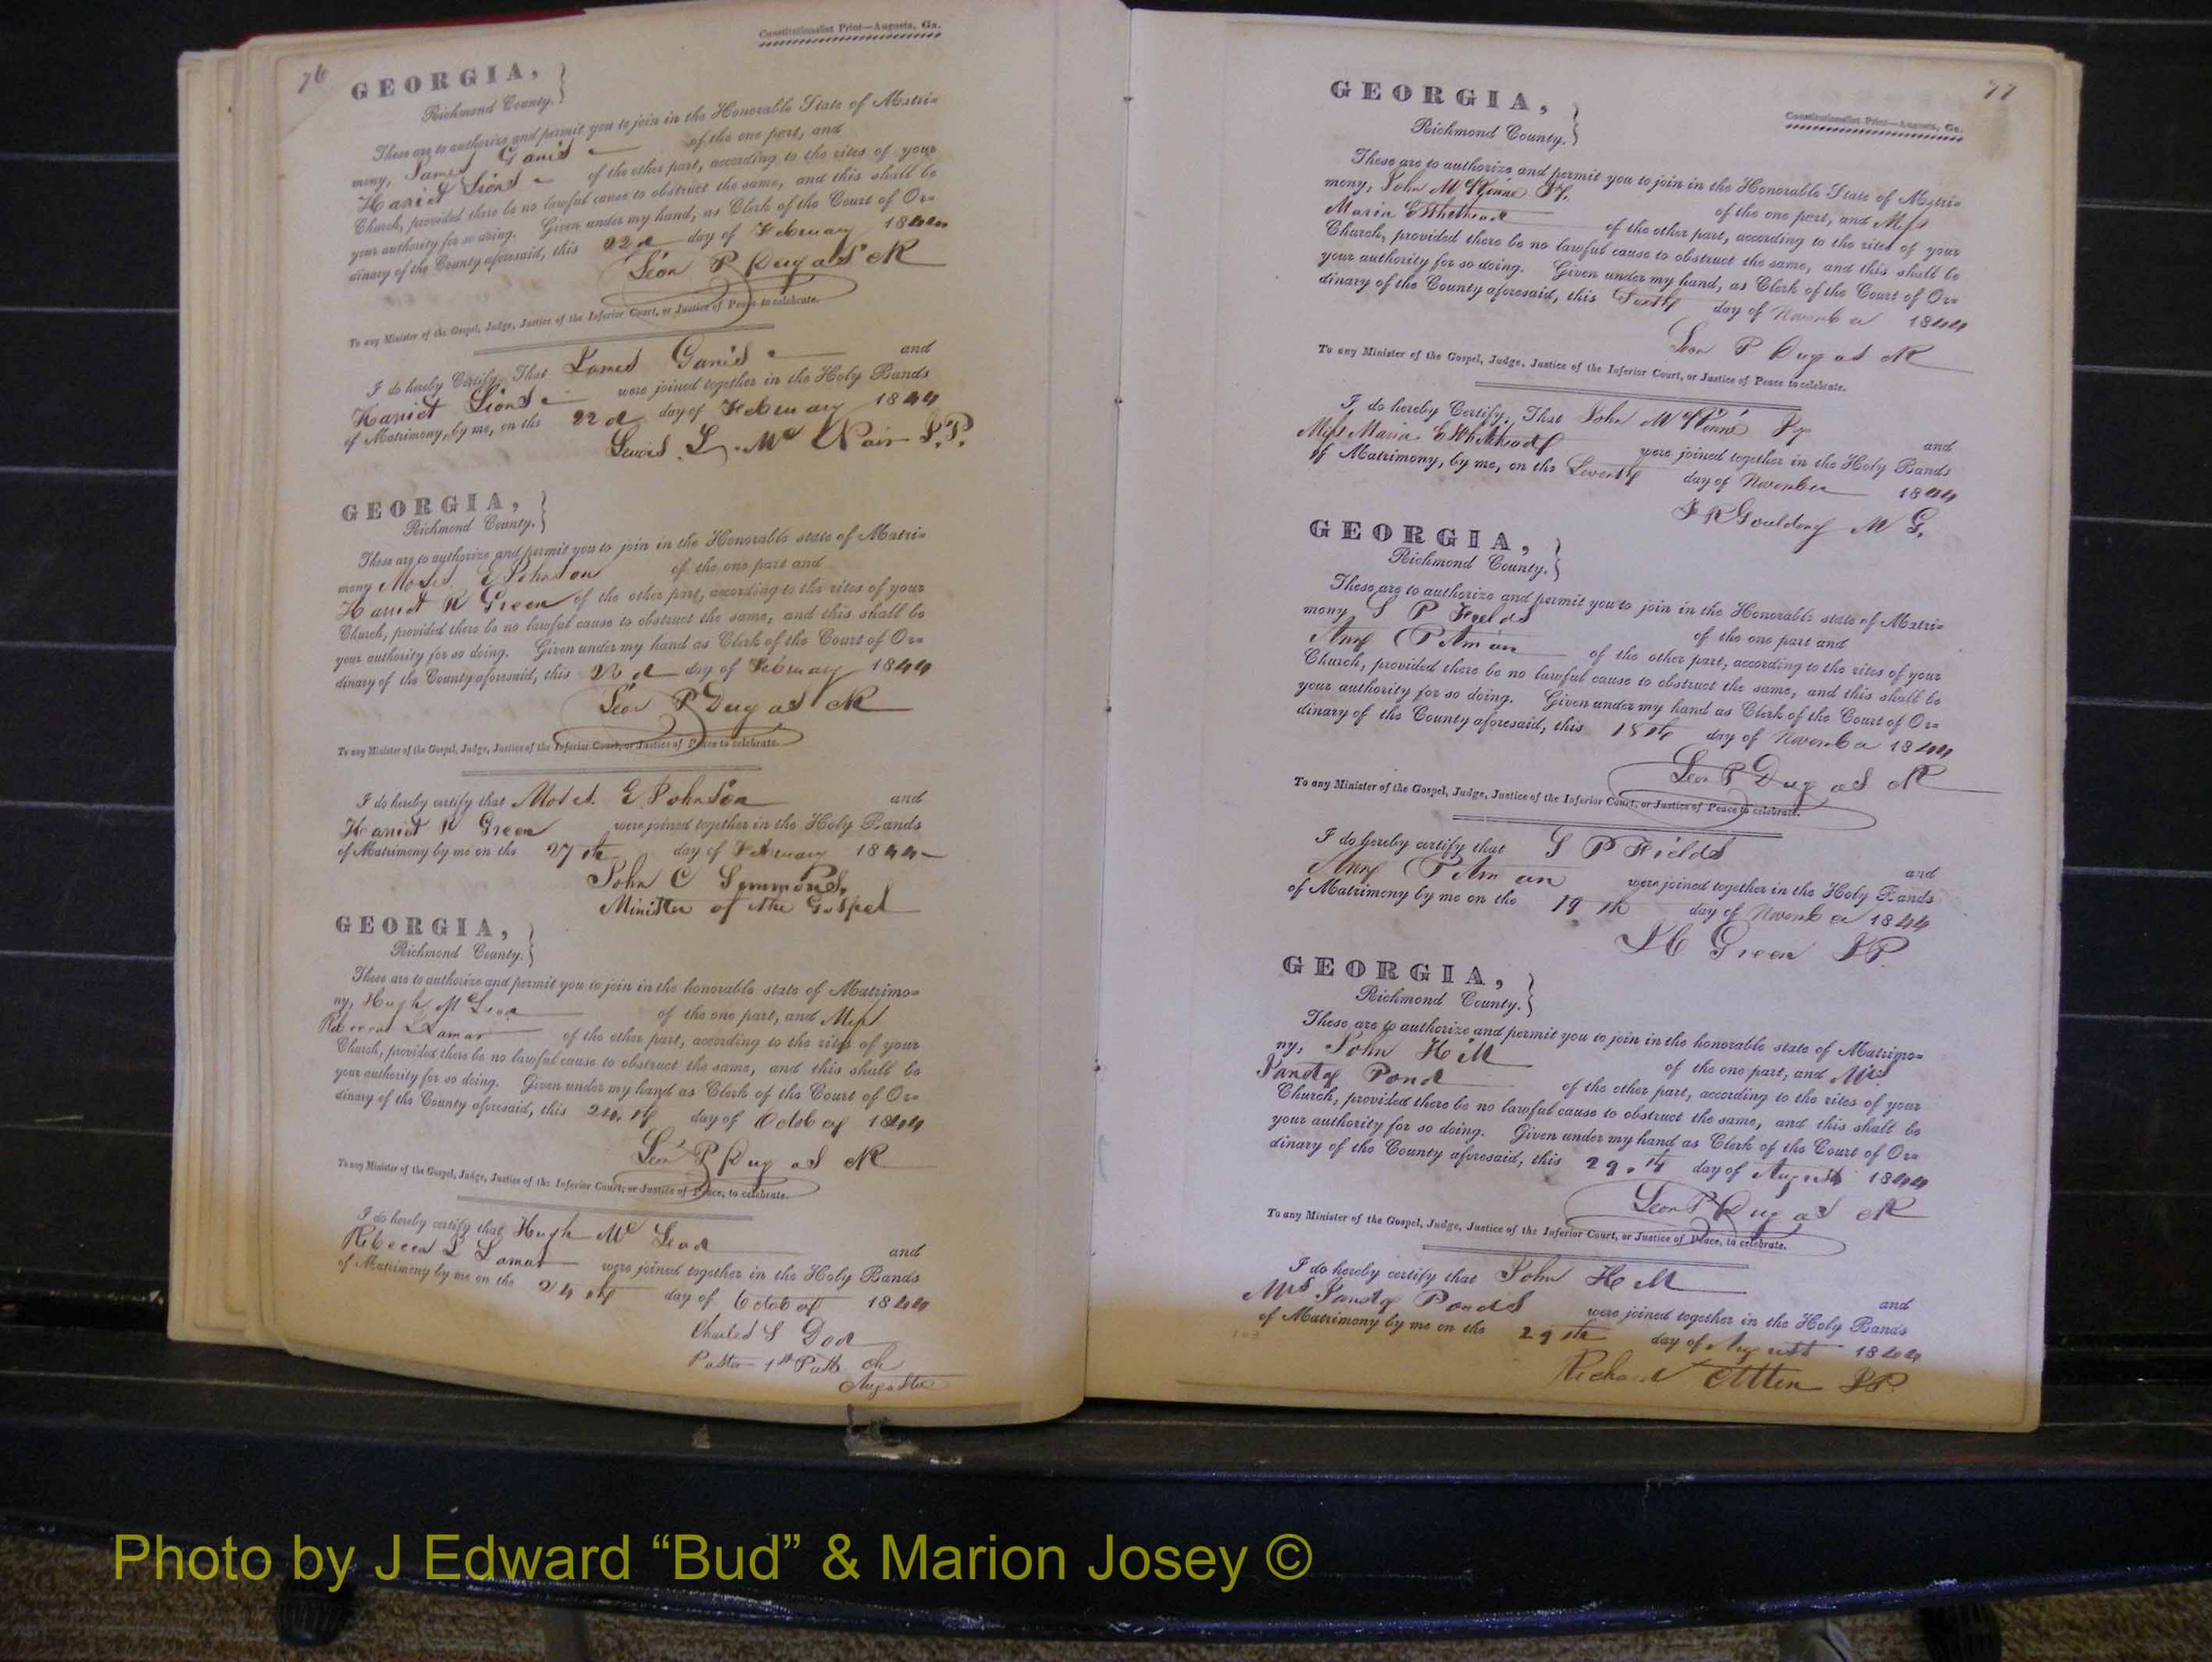 76
Constitutionalist Print—Augusta, Ga.
GEORGIA,
Richmond County.
These are to authorize and permit you to join in the Honorable State of Matri=
mony, James Ganis of the one part, and
Hariet Lions of the other part, according to the rites of your
Church, provided there be no lawful cause to obstruct the same, and this shall be
your authority for so doing. Given under my hand, as Clerk of the Court of Or=
dinary of the County aforesaid, this 22d day of February 1844
Leon P Dugas
To any Minister of the Gospel, Judge, Justice of the Inferior Court, or Justice of Peace to celebrate.
I do hereby Certify, That James Ganis and
Hariet Lions were joined together in the Holy Bands
of Matrimony, by me, on the 22d day of February 1844
Lewis L. McNair J.P.
GEORGIA,
Richmond County.
These are to authorize and permit you to join in the Honorable state of Matri=
mony Moses E Johnson of the one part and
Harriet R Green of the other part, according to the rites of your
Church, provided there be no lawful cause to obstruct the same, and this shall be
your authority for so doing. Given under my hand as Clerk of the Court of Or=
dinary of the County aforesaid, this day of February 1844
Leon P Dugas
To any Minister of the Gospel, Judge, Justice of the Inferior Court, or Justice of Peace to celebrate.
I do hereby certify that Moses E Johnson and
Harriet R Green were joined together in the Holy Bands
of Matrimony by me on the 27th day of February 1844
John C Simmons,
Minister of the Gospel
GEORGIA,
Richmond County.
These are to authorize and permit you to join in the honorable state of Matrimo=
ny, Hugh McLeod of the one part, and Miss
Rebecca L Lamar of the other part, according to the rites of your
Church, provided there be no lawful cause to obstruct the same, and this shall be
your authority for so doing. Given under my hand as Clerk of the Court of Or=
dinary of the County aforesaid, this 24th day of 1844
Leon P Dugas
To any Minister of the Gospel, Judge, Justice of the Inferior Court, or Justice of Peace, to celebrate.
I do hereby certify that Hugh McLeod and
Rebecca L Lamar were joined together in the Holy Bands
of Matrimony by me on the 24th day of 1844
Charles S Dod
Pastor 1st
Augusta
77
Constitutionalist Print—Augusta, Ga.
GEORGIA,
Richmond County.
These are to authorize and permit you to join in the Honorable State of Matri=
mony, John McKinne Jr. of the one part, and Miss
Maria E Whitehead of the other part, according to the rites of your
Church, provided there be no lawful cause to obstruct the same, and this shall be
your authority for so doing. Given under my hand, as Clerk of the Court of Or=
dinary of the County aforesaid, this Sixth day of November 1844
Leon P Dugas
To any Minister of the Gospel, Judge, Justice of the Inferior Court, or Justice of Peace to celebrate.
I do hereby Certify, That John McKinne Jr and
Miss Maria E Whitehead were joined together in the Holy Bands
of Matrimony, by me, on the Seventh day of November 1844
F R Goulding M G.
GEORGIA,
Richmond County.
These are to authorize and permit you to join in the Honorable state of Matri=
mony S P Fields of the one part and
Ann of the other part, according to the rites of your
Church, provided there be no lawful cause to obstruct the same, and this shall be
your authority for so doing. Given under my hand as Clerk of the Court of Or=
dinary of the County aforesaid, this 18th day of November 1844
Leon P Dugas
To any Minister of the Gospel, Judge, Justice of the Inferior Court, or Justice of Peace to celebrate.
I do hereby certify that S P Fields and
Ann were joined together in the Holy Bands
of Matrimony by me on the 19th day of November 1844
Green JP.
GEORGIA,
Richmond County.
These are to authorize and permit you to join in the honorable state of Matrimo=
ny, John Hill of the one part, and Mrs
Pond of the other part, according to the rites of your
Church, provided there be no lawful cause to obstruct the same, and this shall be
your authority for so doing. Given under my hand as Clerk of the Court of Or=
dinary of the County aforesaid, this 29th day of August 1844
Leon P Dugas
To any Minister of the Gospel, Judge, Justice of the Inferior Court, or Justice of Peace, to celebrate.
I do hereby certify that John Hill and
Mrs Ponds were joined together in the Holy Bands
of Matrimony by me on the 29th day of August 1844
Richard Allen JP.
Photo by J Edward “Bud” & Marion Josey ©